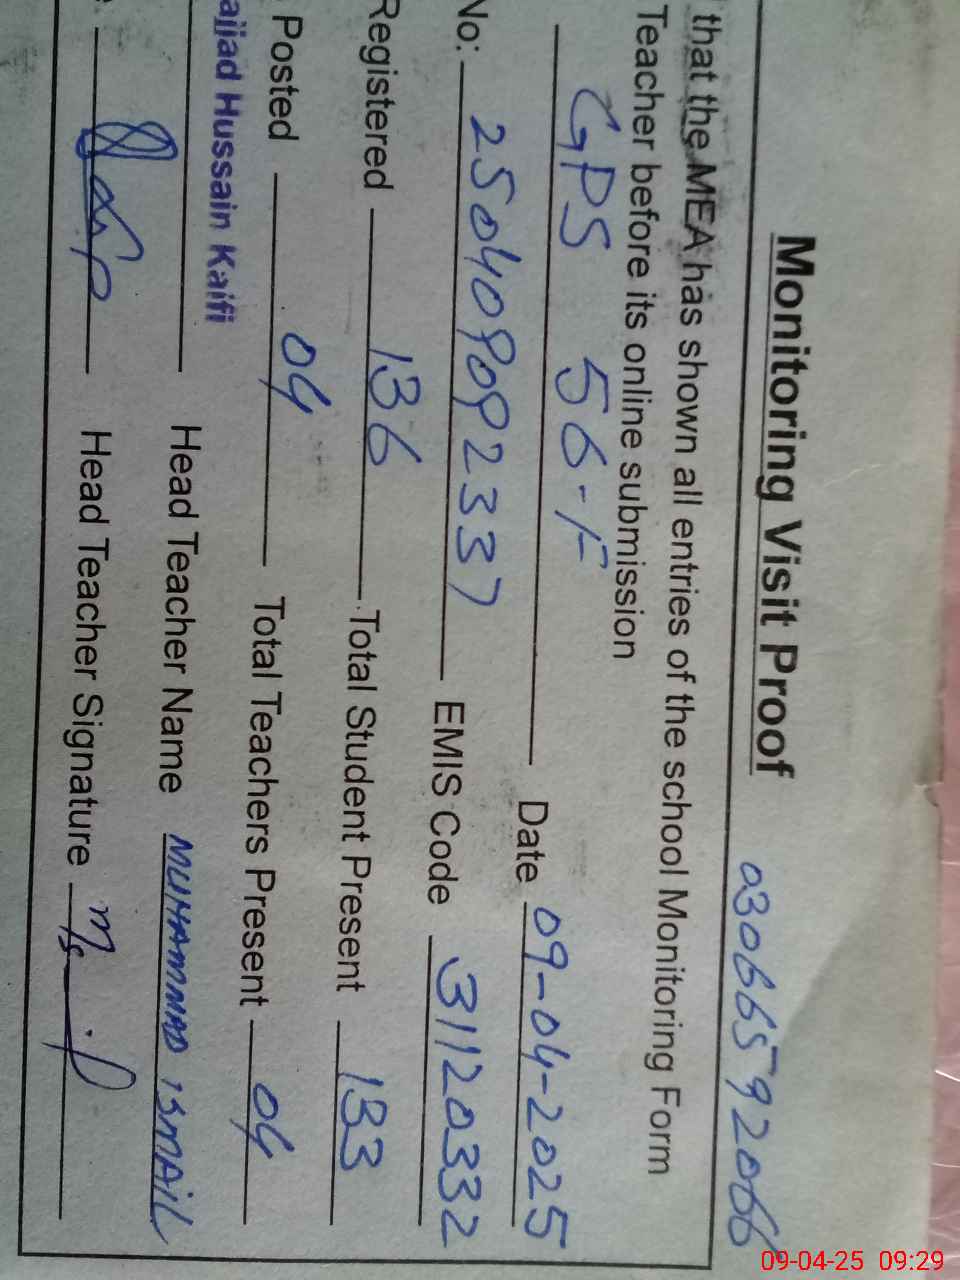 Monitoring Visit Proof 03066592066
that the MEA has shown all entries of the school Monitoring Form
Teacher before its online submission
GPS 56-F Date 09-04-2025
No: 250409092337 EMIS Code 31120332
Registered 136 Total Student Present 133
Posted 04 Total Teachers Present 04
ajjad Hussain Kaifi Head Teacher Name MUHAMMAD ISMAIL
Head Teacher Signature
09-04-25 09:29